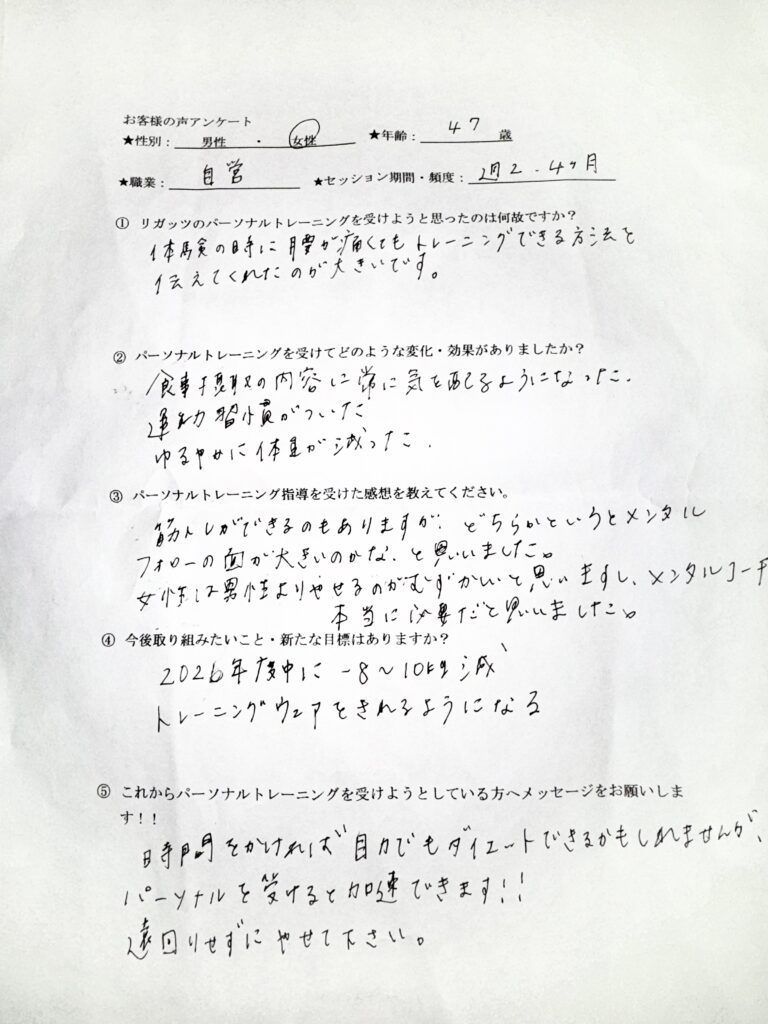 お客様の声アンケート
★性別： 男性 ・ 女性 ★年齢： 47 歳
★職業： 自営 ★セッション期間・頻度： 週2・4ヶ月
① リガッツのパーソナルトレーニングを受けようと思ったのは何故ですか？
体験の時に腰が痛くてもトレーニングできる方法を
伝えてくれたのが大きいです。
② パーソナルトレーニングを受けてどのような変化・効果がありましたか？
食事摂取の内容に常に気を配るようになった.
運動習慣がついた
ゆるやかに体重が減った.
③ パーソナルトレーニング指導を受けた感想を教えてください。
筋トレができるのもありますが、どちらかというとメンタル
フォローの面が大きいのかな、と思いました。
女性は男性よりやせるのがむずかしいと思いますし、メンタルコーチ
本当に必要だと思いました。
④ 今後取り組みたいこと・新たな目標はありますか？
2026年度中に -8～10kg減
トレーニングウェアをきれるようになる
⑤ これからパーソナルトレーニングを受けようとしている方へメッセージをお願いしま
す！！
時間をかければ自力でもダイエットできるかもしれませんが、
パーソナルを受けると加速できます!!
遠回りせずにやせて下さい。